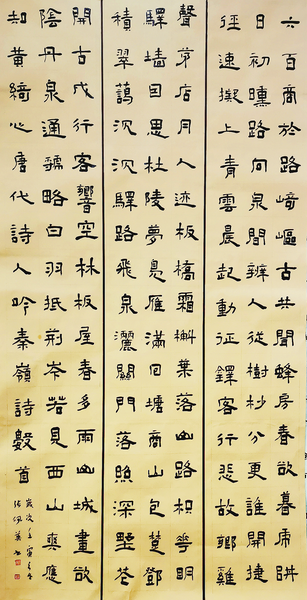 六百商於路崎嶇古共聞蜂房春欲暮虎阱
日初曛路向泉間辨人從樹杪分更誰開捷
徑速擬上青雲晨起動征鐸客行悲故鄉雞
聲茅店月人迹板橋霜槲葉落山路枳華明
驛墻因思杜陵夢鳧雁滿回塘商山包楚鄧
積翠藹沉沉驛路飛泉灑關門落照深野花
開古戍行客響空林板屋春多雨山城晝欲
陰丹泉通虢略白羽抵荊岑若見西山爽應
知黃綺心唐代詩人吟秦嶺詩數首
歲次壬寅